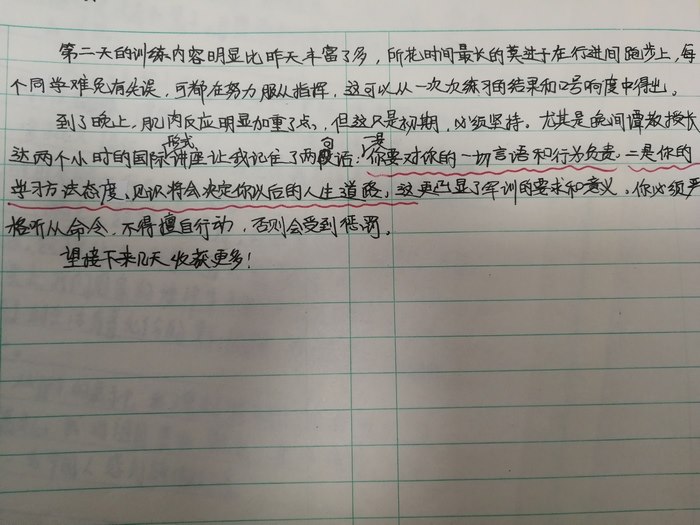 第二天的训练内容明显比昨天丰富了多，所花时间最长的莫过于在行进间跑步上，每
个同学难免有失误，可都在努力服从指挥，这可以从一次次练习的结果和口号响度中得出。
到了晚上，肌肉反应明显加重了点，但这只是初期，必须坚持。尤其是晚间谭教授长
达两个小时的国际形式讲座让我记住了两句话：一是你要对你的一切言语和行为负责，二是你的
学习方法态度、见识将会决定你以后的人生道路，这更凸显了军训的要求和意义，你必须严
格听从命令，不得擅自行动，否则会受到惩罚。
望接下来几天收获更多！